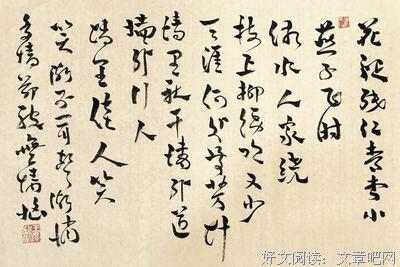 花褪残红青杏小
燕子飞时
绿水人家绕
枝上柳绵吹又少
天涯何处无芳草
墙里秋千墙外道
墙外行人
墙里佳人笑
笑渐不闻声渐悄
多情却被无情恼
好文阅读：文章吧网